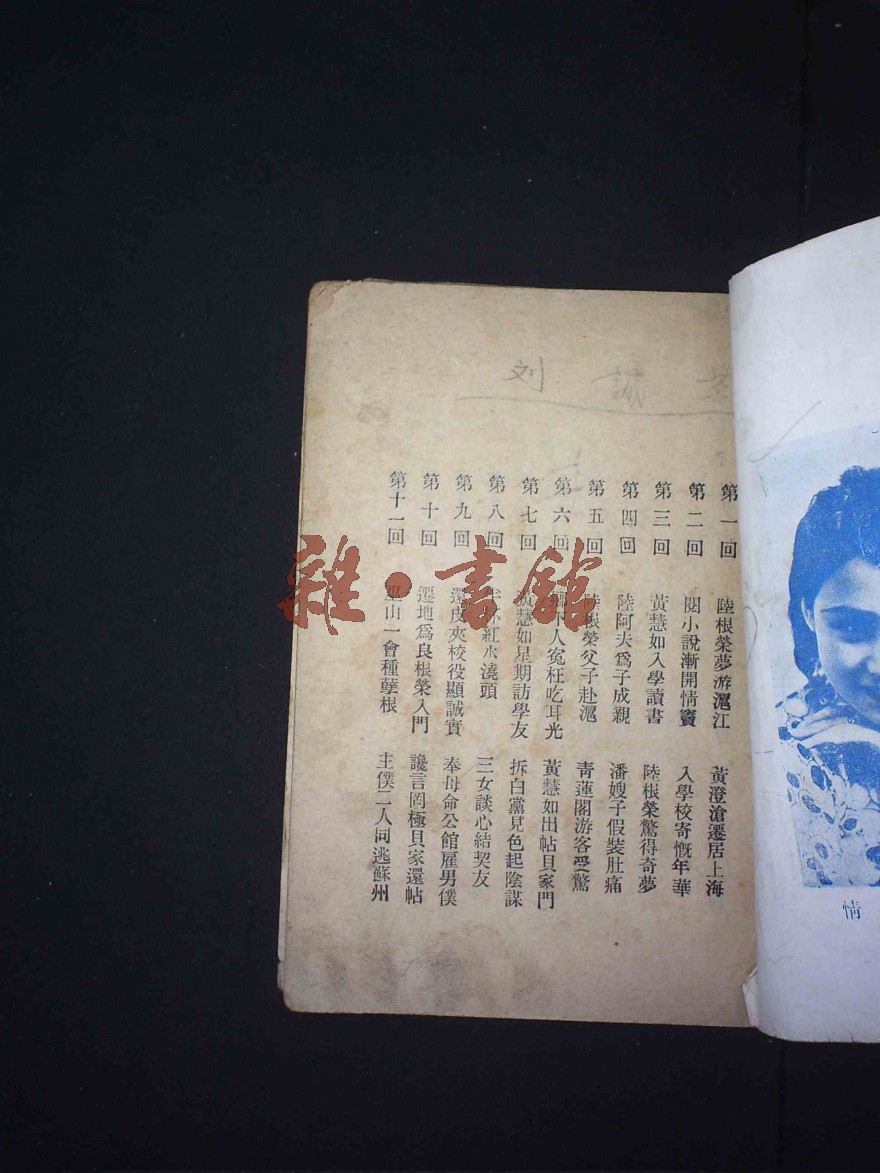 刘 誠
第一回 陸根榮夢游滬江 黃澄滄遷居上海
第二回 閱小說漸開情竇 入學校寄慨年華
第三回 黃慧如入學讀書 陸根榮驚得奇夢
第四回 陸阿夫爲子成親 潘嫂子假裝肚痛
第五回 陸根榮父子赴滬 靑蓮閣游客受驚
第六回 下人寃枉吃耳光 黃慧如出帖貝家門
第七回 黃慧如星期訪學友 拆白黨見色起陰謀
第八回 紅水澆頭 三女談心結契友
第九回 還皮夾校役顯誠實 奉母命公館雇男僕
第十回 遷地爲良根榮入門 讒言罔極貝家還帖
第十一回 巫山一會種孽根 主僕二人同逃蘇州
情
雜·書館